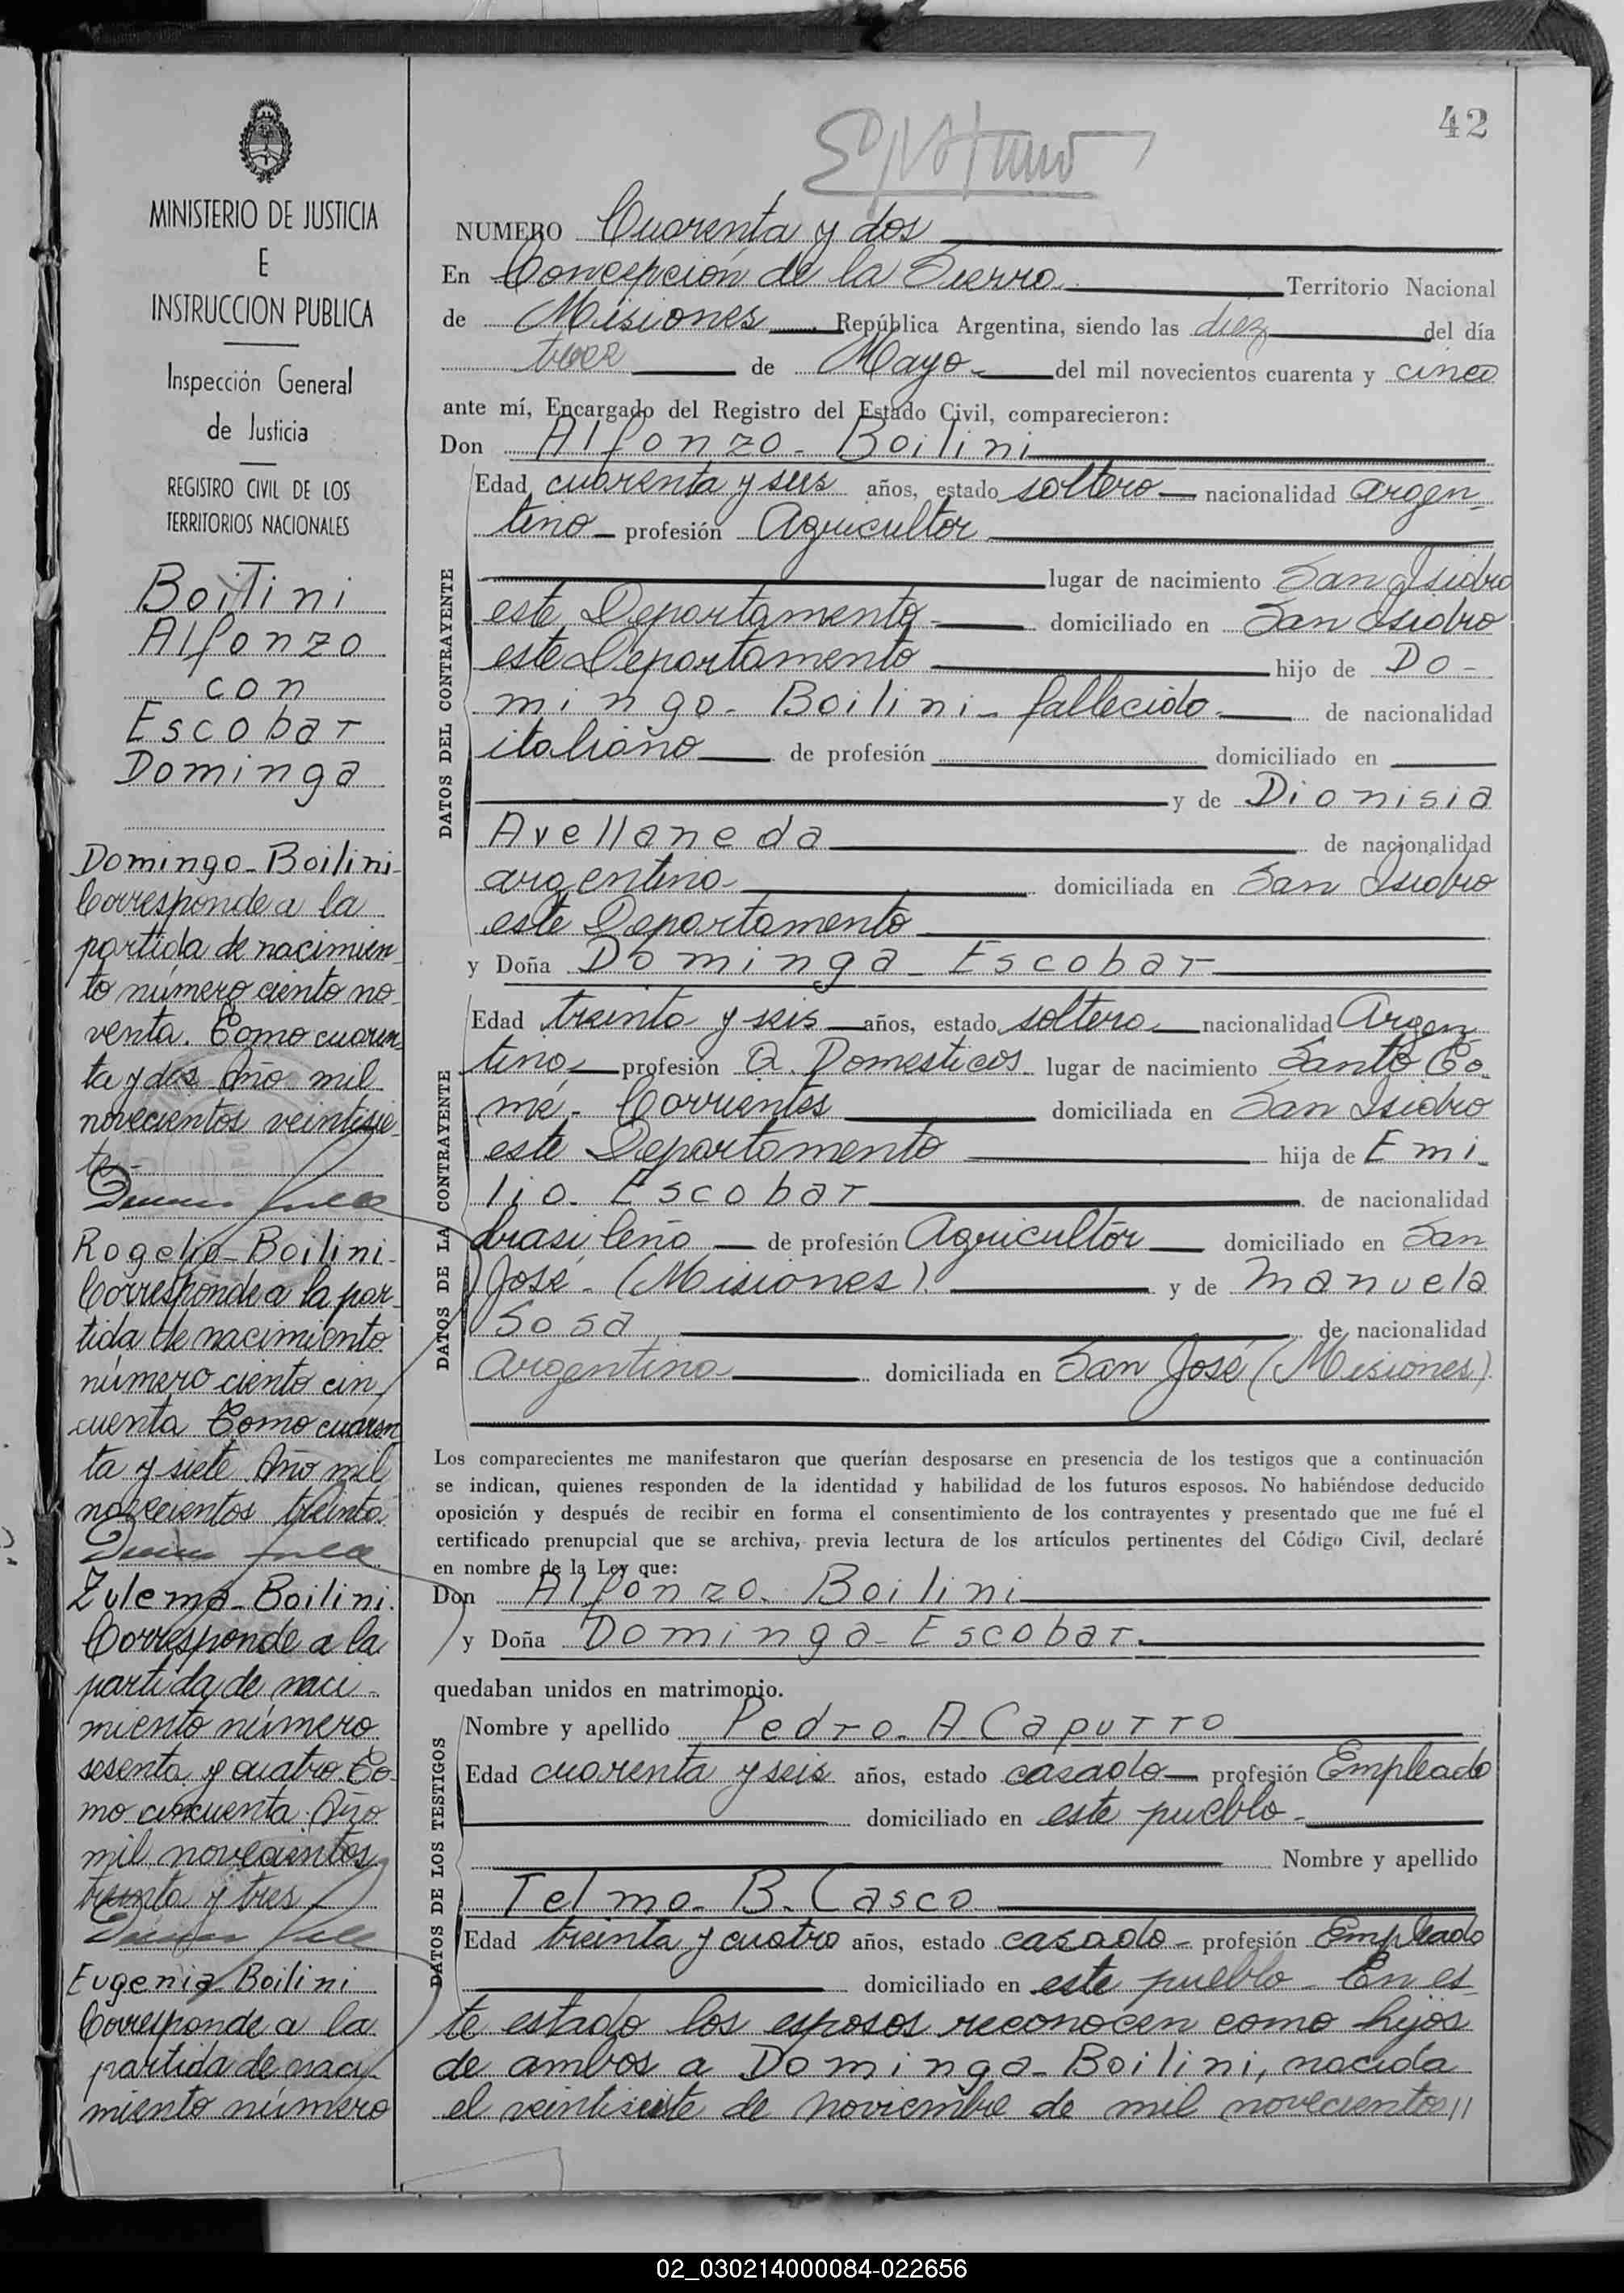 42
MINISTERIO DE JUSTICIA
E
INSTRUCCION PUBLICA
Inspección General
de Justicia
REGISTRO CIVIL DE LOS
TERRITORIOS NACIONALES
Boilini
Alfonzo
con
Escobar
Dominga
Domingo - Boilini -
Corresponde a la
partida de nacimien
to número ciento no
venta. Tomo cuaren
ta y dos Año mil
novecientos veintisie
te -
Rogelio - Boilini -
Corresponde a la par
tida de nacimiento
número ciento cin
cuenta Tomo cuaren
ta y siete Año mil
novecientos treinta
Zulema - Boilini.
Corresponde a la
partida de naci -
miento número
sesenta y cuatro To
mo cincuenta. Año
mil novecientos
treinta y tres
Eugenia Boilini
Corresponde a la
partida de naci -
miento número
NUMERO Cuarenta y dos
En Concepción de la Sierra Territorio Nacional
de Misiones República Argentina, siendo las diez del día
trece de Mayo - del mil novecientos cuarenta y cinco
ante mí, Encargado del Registro del Estado Civil, comparecieron:
Don Alfonzo - Boilini
DATOS DEL CONTRAYENTE
Edad cuarenta y seis años, estado soltero nacionalidad argen
tino profesión Agricultor
lugar de nacimiento San Isidro
este Departamento - domiciliado en San Isidro
este Departamento hijo de Do -
mingo - Boilini - fallecido - de nacionalidad
italiano de profesión domiciliado en
y de Dionisia
Avellaneda de nacionalidad
argentina domiciliada en San Isidro
este Departamento
y Doña Dominga - Escobar
DATOS DE LA CONTRAYENTE
Edad treinta y seis años, estado soltera nacionalidad Argen
tina profesión Q. Domesticos lugar de nacimiento Santo To
mé - Corrientes domiciliada en San Isidro
este Departamento hija de Emi
lio. Escobar de nacionalidad
brasileño de profesión Agricultor domiciliado en San
José - (Misiones). y de Manuela
Sosa de nacionalidad
argentina domiciliada en San José (Misiones).
Los comparecientes me manifestaron que querían desposarse en presencia de los testigos que a continuación
se indican, quienes responden de la identidad y habilidad de los futuros esposos. No habiéndose deducido
oposición y después de recibir en forma el consentimiento de los contrayentes y presentado que me fué el
certificado prenupcial que se archiva, previa lectura de los artículos pertinentes del Código Civil, declaré
en nombre de la Ley que:
Don Alfonzo. Boilini
y Doña Dominga - Escobar.
quedaban unidos en matrimonio.
DATOS DE LOS TESTIGOS
Nombre y apellido Pedro - A. Caputto
Edad cuarenta y seis años, estado casado profesión Empleado
domiciliado en este pueblo -
Nombre y apellido
Telmo - B. Casco
Edad treinta y cuatro años, estado casado - profesión Empleado
domiciliado en este pueblo - En es
te estado los esposos reconocen como hijos
de ambos a Dominga - Boilini, nacida
el veintisiete de noviembre de mil novecientos //
02_030214000084-022656